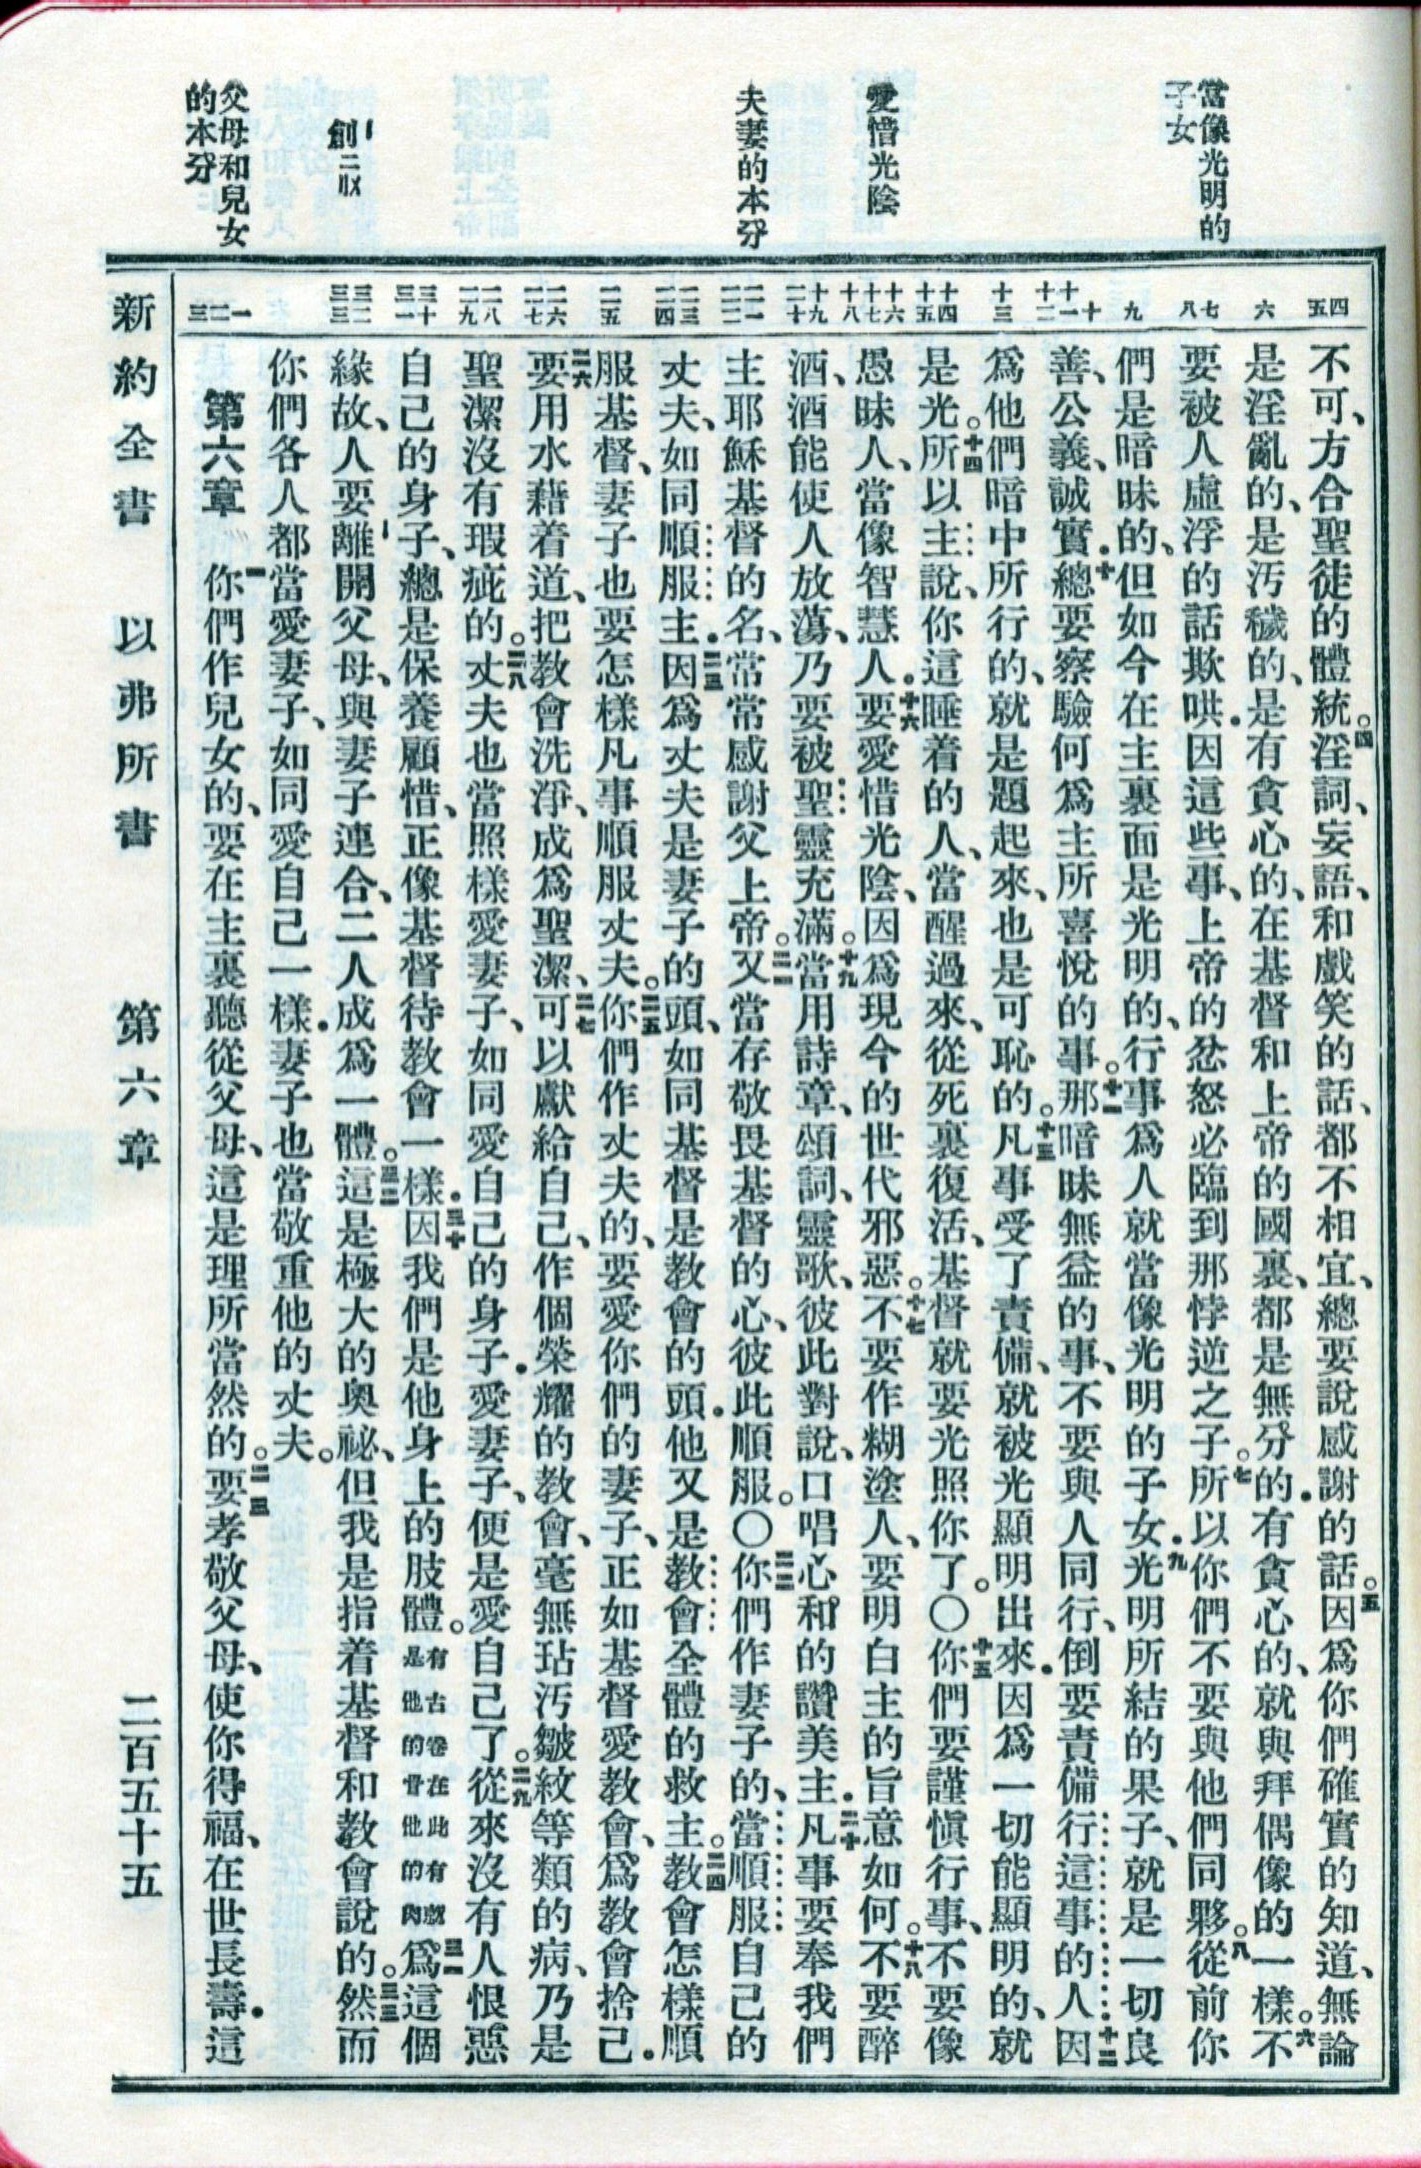 當像光明的
子女
愛惜光陰
夫妻的本分
創二
父母和兒女
的本分
四
五
六
七
八
九
十
十一
十二
十三
十四
十五
十六
十七
十八
十九
二十
二一
二二
二三
二四
二五
二六
二七
二八
二九
三十
三一
三二
三三
一
二
三
不可、方合聖徒的體統。四淫詞、妄語、和戲笑的話、都不相宜、總要說感謝的話。五因爲你們確實的知道、無論
是淫亂的、是汚穢的、是有貪心的、在基督和上帝的國裏、都是無分的．有貪心的、就與拜偶像的一樣。六不
要被人虛浮的話欺哄．因這些事、上帝的忿怒必臨到那悖逆之子。七所以你們不要與他們同夥。八從前你
們是暗昧的、但如今在主裏面是光明的、行事爲人就當像光明的子女．九光明所結的果子、就是一切良
善、公義、誠實．十總要察驗何爲主所喜悅的事。十一那暗昧無益的事、不要與人同行、倒要責備行這事的人．十二因
爲他們暗中所行的、就是題起來、也是可恥的。十三凡事受了責備、就被光顯明出來．因爲一切能顯明的、就
是光。十四所以主說、你這睡着的人、當醒過來、從死裏復活、基督就要光照你了。〇十五你們要謹愼行事、不要像
愚昧人、當像智慧人．十六要愛惜光陰、因爲現今的世代邪惡。十七不要作糊塗人、要明白主的旨意如何。十八不要醉
酒、酒能使人放蕩、乃要被聖靈充滿。十九當用詩章、頌詞、靈歌、彼此對說、口唱心和的讚美主．二十凡事要奉我們
主耶穌基督的名、常常感謝父上帝。二一又當存敬畏基督的心、彼此順服。〇二二你們作妻子的、當順服自己的
丈夫、如同順服主．二三因爲丈夫是妻子的頭、如同基督是教會的頭．他又是教會全體的救主。二四教會怎樣順
服基督、妻子也要怎樣凡事順服丈夫。二五你們作丈夫的、要愛你們的妻子、正如基督愛教會、爲教會捨己．
二六要用水藉着道、把教會洗淨、成爲聖潔、二七可以獻給自己、作個榮耀的教會、毫無玷汚皺紋等類的病、乃是
聖潔沒有瑕疵的。二八丈夫也當照樣愛妻子、如同愛自己的身子．愛妻子、便是愛自己了。二九從來沒有人恨惡
自己的身子、總是保養顧惜、正像基督待教會一樣．三十因我們是他身上的肢體。有古卷在此有就是他的骨他的肉三一爲這個
緣故、人要離開父母、與妻子連合、二人成爲一體。三二這是極大的奧祕、但我是指着基督和教會說的。三三然而
你們各人都當愛妻子、如同愛自己一樣．妻子也當敬重他的丈夫。
第六章　一你們作兒女的、要在主裏聽從父母、這是理所當然的。二三要孝敬父母、使你得福、在世長壽．這
新約全書　以弗所書　第六章　二百五十五